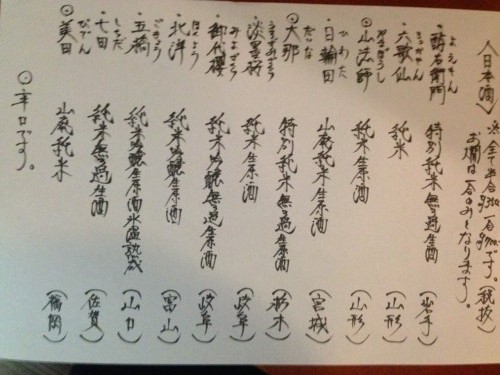 〈日本酒〉※全て半合 一合 です。(税抜)
お燗は一合のみとなります。
・酔右衛門 特別純米無ろ過生原酒 (岩手)
よえもん
・六歌仙 純米 (山形)
ろっかせん
◎山法師 純米生原酒 (山形)
やまほうし
・日輪田 山廃純米生原酒 (宮城)
ひわた
◎大那 特別純米無ろ過生原酒 (栃木)
だいな
・淡墨桜 純米生原酒 (岐阜)
うすずみざくら
・御代櫻 純米吟醸無ろ過生原酒 (岐阜)
みよざくら
・北洋 純米吟醸生原酒 (富山)
ほくよう
・五橋 純米吟醸生原酒氷温熟成 (山口)
ごきょう
・七田 純米無ろ過生酒 (佐賀)
しちだ
◎美田 山廃純米 (福岡)
びでん
◎辛口です。